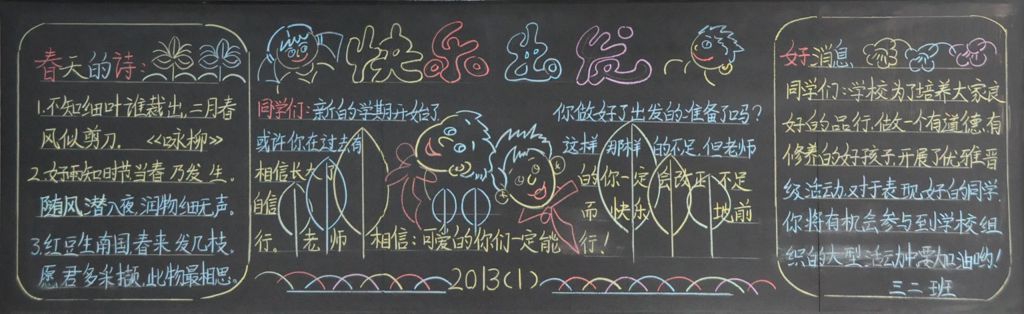 春天的诗:
1.不知细叶谁裁出,二月春
风似剪刀. 《咏柳》
2.好雨知时节当春乃发生.
随风潜入夜,润物细无声.
3.红豆生南国春来发几枝.
愿君多采撷,此物最相思.
快乐出发
同学们:新的学期开始了 你做好了出发的准备了吗?
或许你在过去有 这样那样的不足,但老师
相信长大了 的你一定会改正不足
自信 而快乐 地前
行。老师 相信:可爱的你们一定能 行!
2013(1)
好消息
同学们:学校为了培养大家良
好的品行,做一个有道德,有
修养的好孩子开展了优雅晋
级活动,对于表现好的同学
你将有机会参与到学校组
织的大型活动中要加油哟!
三二班